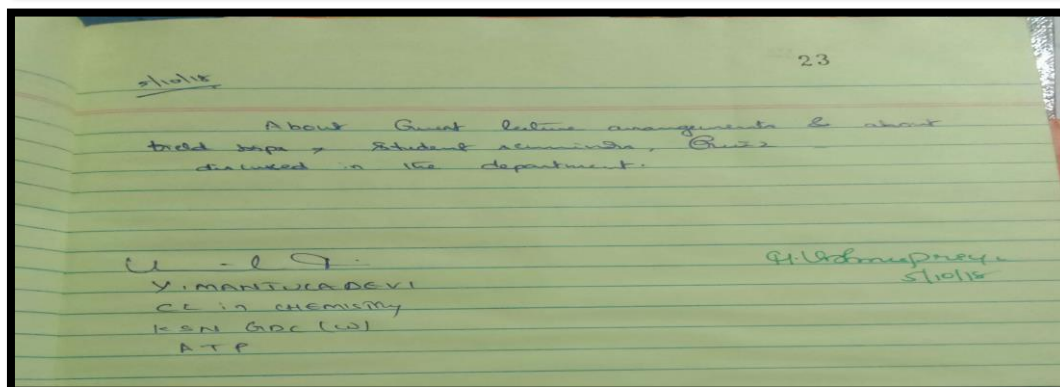 23
5/10/18
About Guest lecture arrangements & about
field trips, Student seminars, Quiz
discussed in the department.
Y. MANJULA DEVI
CL in CHEMISTRY
KSN GDC (W)
ATP
5/10/18